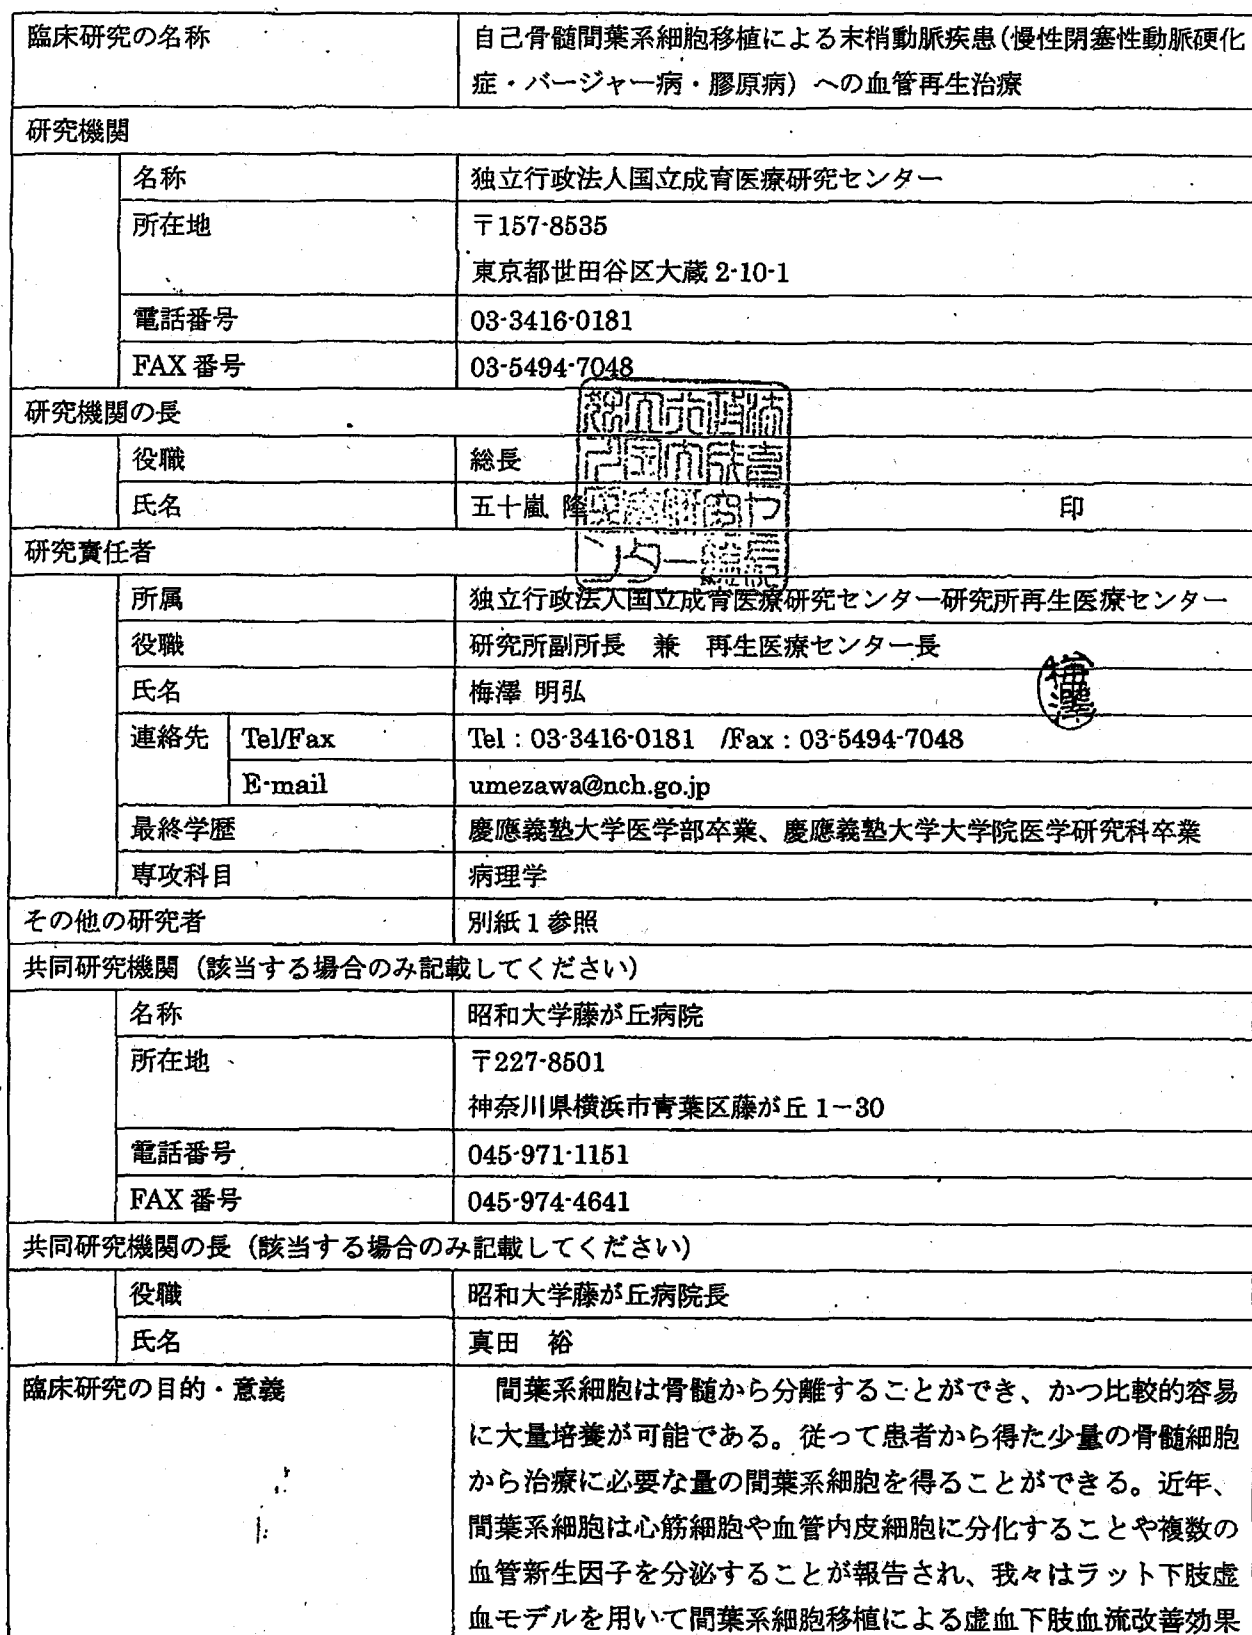 臨床研究の名称
自己骨髄間葉系細胞移植による末梢動脈疾患(慢性閉塞性動脈硬化
症・バージャー病・膠原病)への血管再生治療
研究機関
名称
独立行政法人国立成育医療研究センター
所在地
〒157-8535
東京都世田谷区大蔵 2-10-1
電話番号
03-3416-0181
FAX 番号
03-5494-7048
研究機関の長
役職
総長
氏名
五十嵐 隆
印
研究責任者
所属
独立行政法人国立成育医療研究センター研究所再生医療センター
役職
研究所副所長 兼 再生医療センター長
氏名
梅澤 明弘
梅澤
連絡先
Tel/Fax
Tel : 03-3416-0181 /Fax : 03-5494-7048
E-mail
umezawa@nch.go.jp
最終学歴
慶應義塾大学医学部卒業、慶應義塾大学大学院医学研究科卒業
専攻科目
病理学
その他の研究者
別紙 1 参照
共同研究機関(該当する場合のみ記載してください)
名称
昭和大学藤が丘病院
所在地
〒227-8501
神奈川県横浜市青葉区藤が丘 1-30
電話番号
045-971-1151
FAX 番号
045-974-4641
共同研究機関の長(該当する場合のみ記載してください)
役職
昭和大学藤が丘病院長
氏名
真田 裕
臨床研究の目的・意義
間葉系細胞は骨髄から分離することができ、かつ比較的容易
に大量培養が可能である。従って患者から得た少量の骨髄細胞
から治療に必要な量の間葉系細胞を得ることができる。近年、
間葉系細胞は心筋細胞や血管内皮細胞に分化することや複数の
血管新生因子を分泌することが報告され、我々はラット下肢虚
血モデルを用いて間葉系細胞移植による虚血下肢血流改善効果